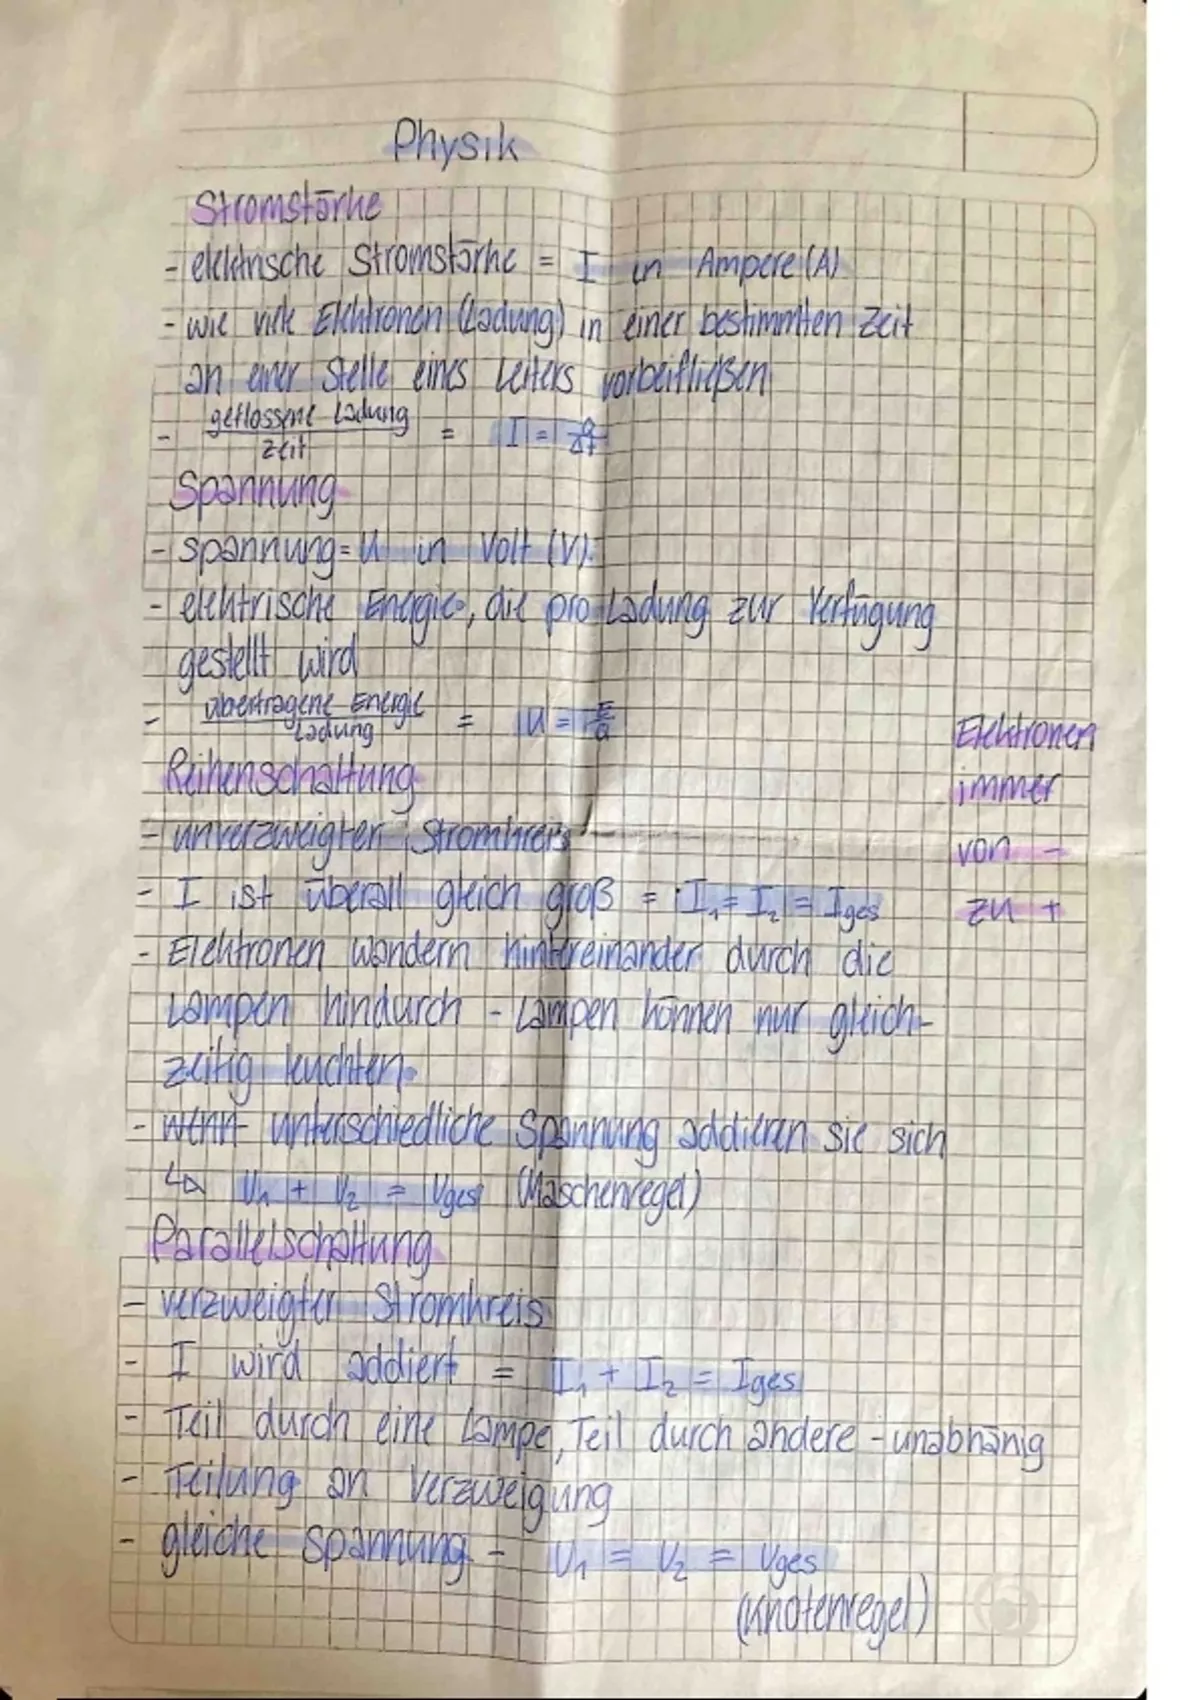 Physik
Stromstärke
- elektrische Stromstärke = I in Ampere (A)
- wie viele Elektronen (Ladung) in einer bestimmten Zeit
an einer Stelle eines Leiters vorbeifließen
- geflossene Ladung / Zeit = I = Q/Δt
Spannung
- Spannung = U in Volt (V).
- elektrische Energie, die pro Ladung zur Verfügung
gestellt wird
- übertragene Energie / Ladung = U = E/Q
Reihenschaltung
- unverzweigter Stromkreis
- I ist überall gleich groß = I₁ = I₂ = Iges
- Elektronen wandern hintereinander durch die
Lampen hindurch - Lampen können nur gleich-
zeitig leuchten
- wenn unterschiedliche Spannung addieren sie sich
↳ U₁ + U₂ = Uges (Maschenregel)
Parallelschaltung
- verzweigter Stromkreis
- I wird addiert = I₁ + I₂ = Iges
- Teil durch eine Lampe, Teil durch andere - unabhänig
- Teilung an Verzweigung
- gleiche Spannung - U₁ = U₂ = Uges
(Knotenregel)
Elektronen
immer
von -
zu +